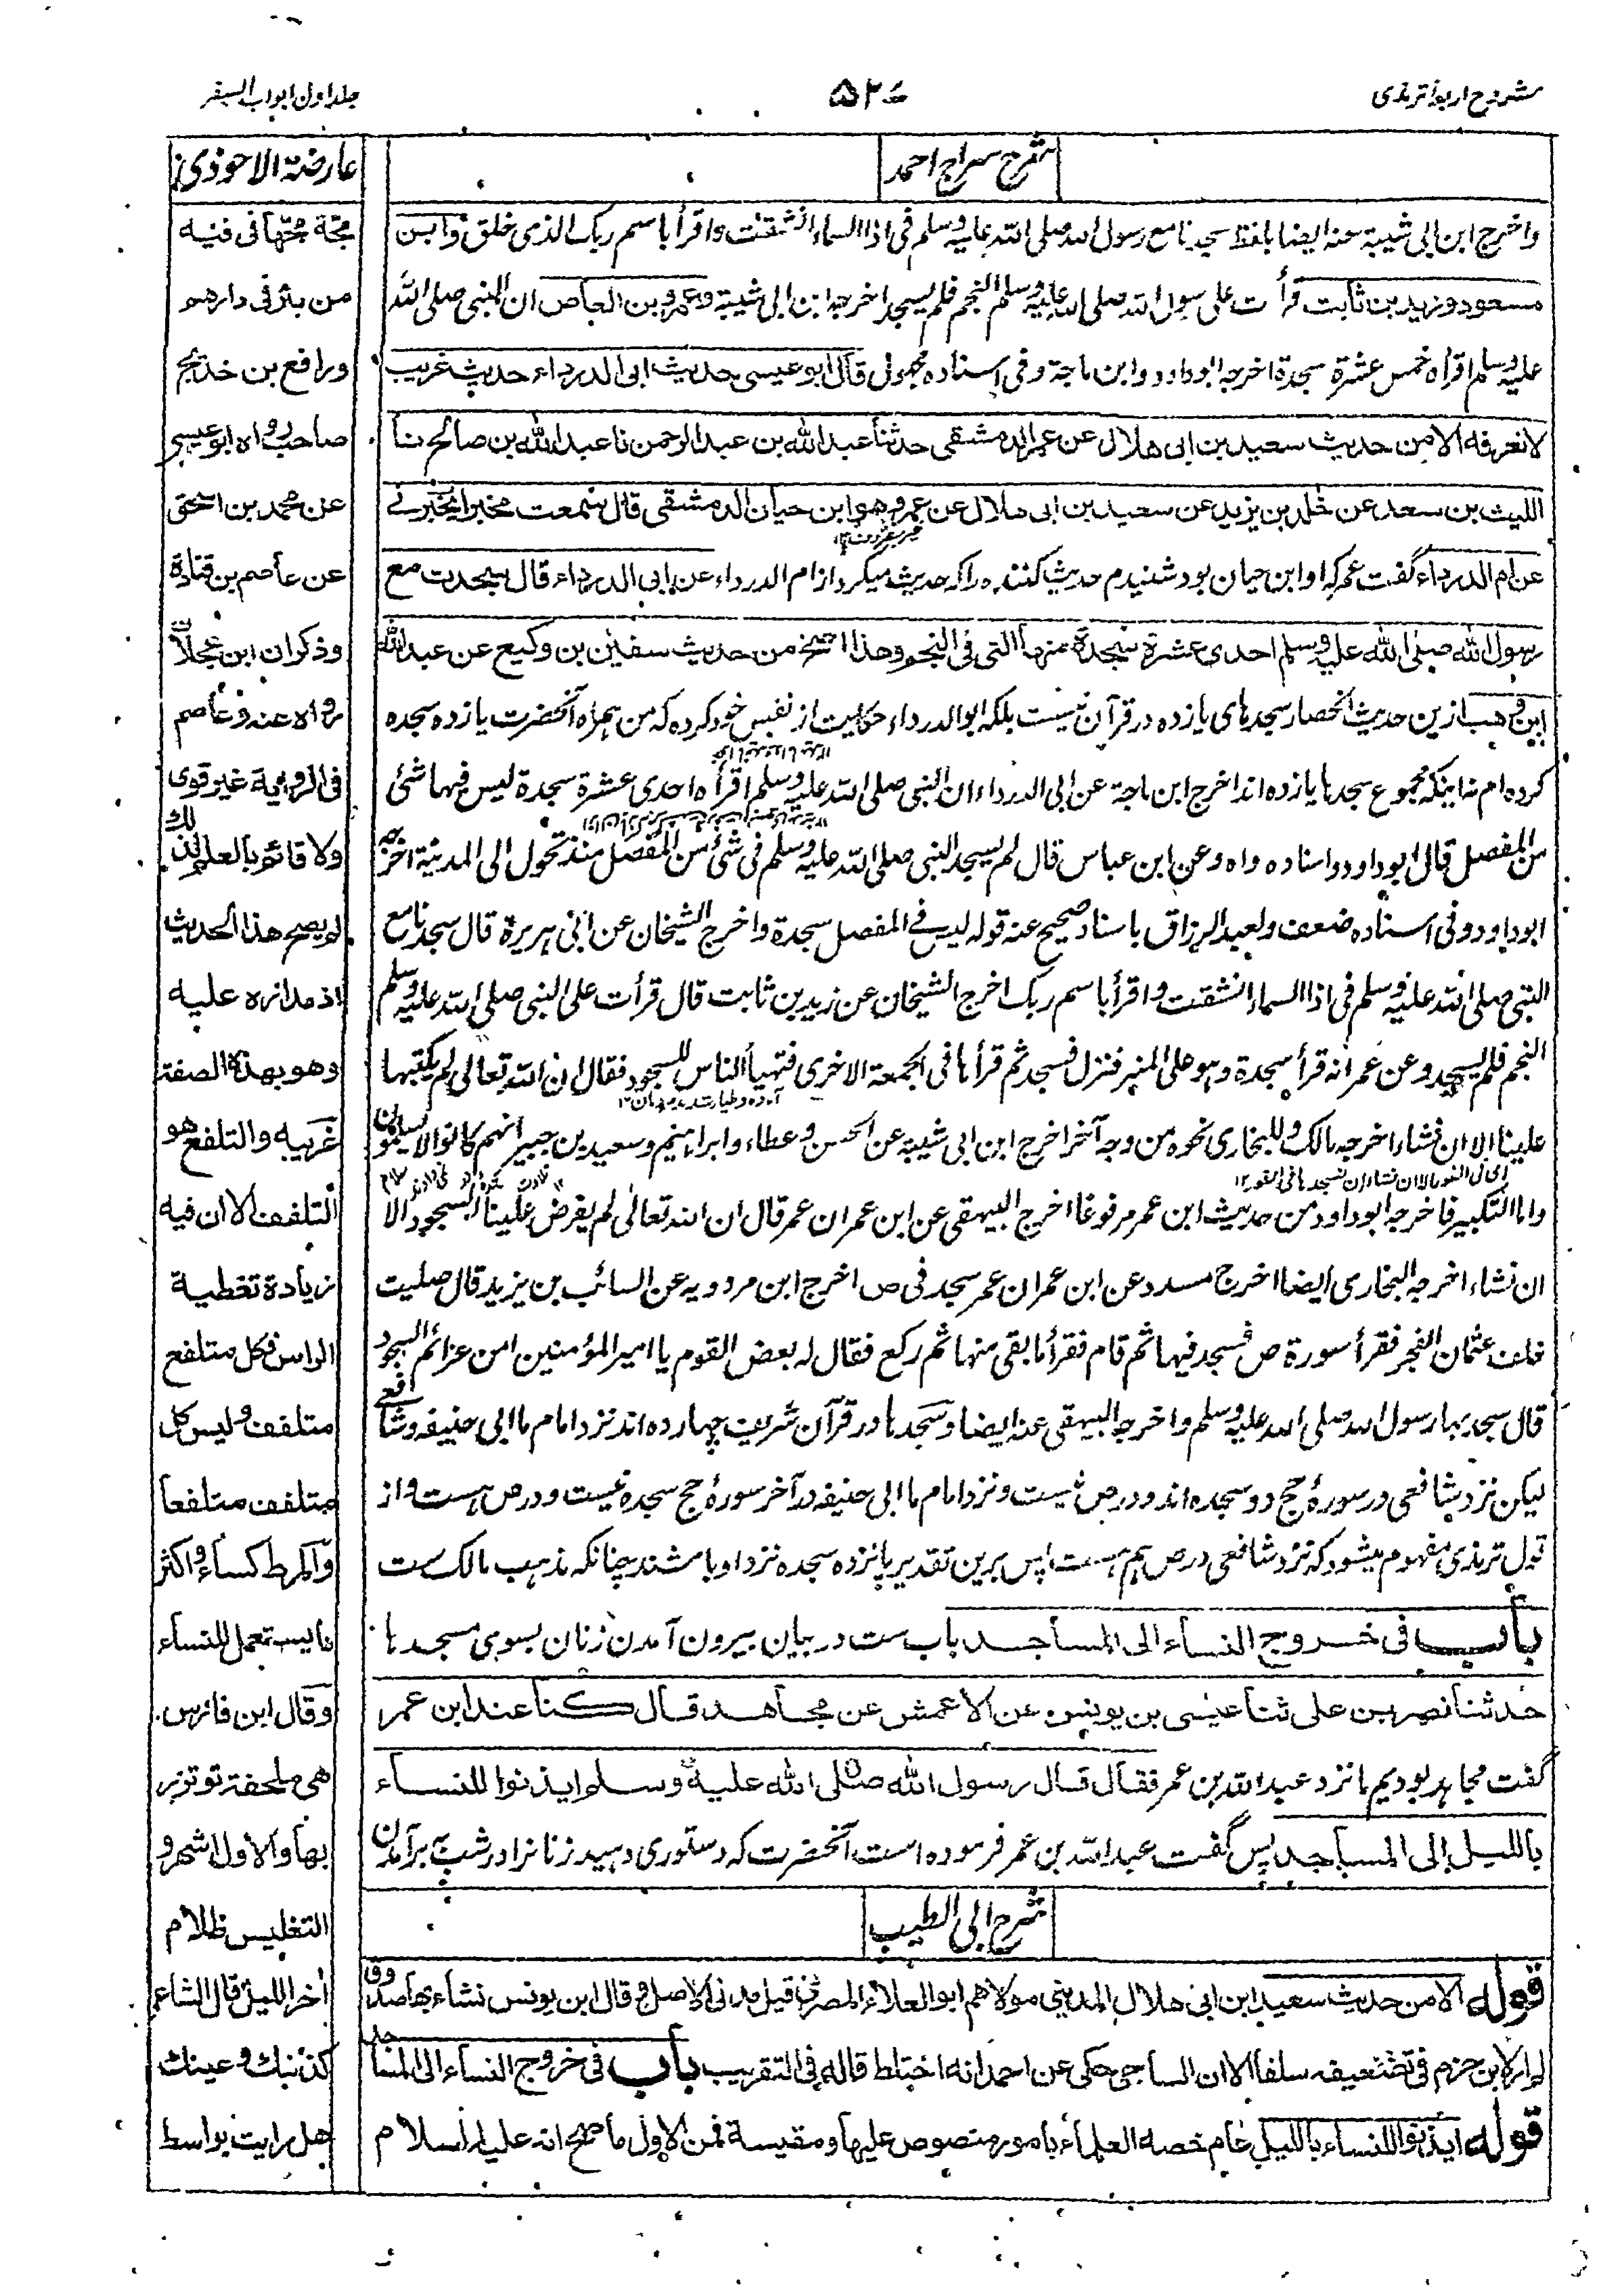 مشروح اربعۂ ترمذی
۵۲۰
جلد اول ابواب السفر
شرح سراج احمد
واخرج ابن ابی شیبة عنہ ایضا بلفظ سجدنا مع رسول اللہ صلی اللہ علیہ وسلم فی اذا السماء انشقت واقرأ باسم ربک الذی خلق وابن
مسعود وزید بن ثابت قرأت علی رسول اللہ صلی اللہ علیہ وسلم النجم فلم یسجد اخرجہ ابن ابی شیبة وعمرو بن العاص ان النبی صلی اللہ
علیہ وسلم اقرأہ خمس عشرة سجدة اخرجہ ابوداود وابن ماجة وفی اسنادہ مجہول قال ابو عیسی حدیث ابی الدرداء حدیث غریب
لا نعرفه الا من حدیث سعید بن ابی هلال عن عمر الدمشقی حدثنا عبد الله بن عبد الرحمن نا عبد الله بن صالح نا
اللیث بن سعد عن خلد بن یزید عن سعید بن ابی هلال عن عمر وهو ابن حیان الدمشقی قال سمعت مخبرا یخبرنی
عن ام الدرداء گفت عمر کہ او ابن حیان بود شنیدم حدیث کنندہ را کہ حدیث میکرد از ام الدرداء عن ابی الدرداء قال سجدت مع
رسول الله صلی الله علیه وسلم احدی عشرة سجدة منها التی فی النجم وهذا اصح من حدیث سفین بن وکیع عن عبد الله
ابن وهب ازین حدیث انحصار سجدہای یازدہ در قرآن نیست بلکہ ابو الدرداء حکایت از نفس خود کردہ کہ من ہمراہ آنحضرت یازدہ سجدہ
کردہ ام نہ اینکہ مجموع سجدہا یازدہ اند اخرج ابن ماجة عن ابی الدرداء ان النبی صلی اللہ علیہ وسلم اقرأہ احدی عشرة سجدة لیس فیہا شئ
من المفصل قال ابوداود واسنادہ واہ وعن ابن عباس قال لم یسجد النبی صلی اللہ علیہ وسلم فی شئ من المفصل منذ تحول الی المدینة اخرجہ
ابوداود وفی اسنادہ ضعف ولعبد الرزاق باسناد صحیح عنہ قولہ لیس فے المفصل سجدة واخرج الشیخان عن ابی ہریرة قال سجدنا مع
النبی صلی اللہ علیہ وسلم فی اذا السماء انشقت واقرأ باسم ربک اخرج الشیخان عن زید بن ثابت قال قرأت علی النبی صلی اللہ علیہ وسلم
النجم فلم یسجد وعن عمر انہ قرأ سجدة وہو علی المنبر فنزل فسجد ثم قرأہا فی الجمعة الاخری فتہیأ الناس للسجود فقال ان اللہ تعالی لم یکتبہا
علینا الا ان نشاء اخرجہ مالک وللبخاری نحوہ من وجہ آخر اخرج ابن ابی شیبة عن الحسن وعطاء وابراہیم وسعید بن جبیر انہم کانوا لا یسلمون
واما التکبیر فاخرجہ ابوداود من حدیث ابن عمر مرفوعا اخرج البیہقی عن ابن عمر ان عمر قال ان اللہ تعالی لم یفرض علینا السجود الا
ان نشاء اخرجہ البخاری ایضا اخرج مسدد عن ابن عمر ان عمر سجد فی ص اخرج ابن مردویہ عن السائب بن یزید قال صلیت
خلف عثمان الفجر فقرأ سورة ص فسجد فیہا ثم قام فقرأ ما بقی منہا ثم رکع فقال لہ بعض القوم یا امیر المؤمنین امن عزائم السجود
قال سجد بہا رسول اللہ صلی اللہ علیہ وسلم واخرجہ البیہقی عنہ ایضا وسجدہا در قرآن شریف چہاردہ اند نزد امام ما ابی حنیفہ وشافعے
لیکن نزد شافعی در سورۂ حج دو سجدہ اند و در ص نیست و نزد امام ما ابی حنیفہ در آخر سورۂ حج سجدہ نیست و در ص ہست و از
قول ترمذی مفہوم میشود کہ نزد شافعی در ص ہم ہست پس برین تقدیر پانزدہ سجدہ نزد او باشند چنانکہ مذہب مالک ست
باب فی خروج النساء الی المساجد باب ست در بیان بیرون آمدن زنان بسوی مسجدہا
حدثنا نصر بن علی ثنا عیسی بن یونس عن الاعمش عن مجاهد قال کنا عند ابن عمر
گفت مجاہد بودیم ما نزد عبد اللہ بن عمر فقال قال رسول الله صلی الله علیه وسلم ایذنوا للنساء
باللیل الی المساجد پس گفت عبد اللہ بن عمر فرمودہ است آنحضرت کہ دستوری دہید زنانرا در شب برآمدن
شرح ابی الطیب
قوله الا من حدیث سعید ابن ابی هلال المدینی مولاهم ابو العلاء المصری قیل مدنی الاصل وقال ابن یونس نشاء بها صدوق
لم ار لابن حزم فی تضعیفه سلفا الا ان الساجی حکی عن احمد انه اختلط قاله فی التقریب باب فی خروج النساء الی المساجد
قوله ایذنوا للنساء باللیل عام خصه العلماء بامور منصوص علیها ومقیسة فمن الاول ما صح انه علیه السلام
عارضة الاحوذی
مجة مجها فی فیه
من بئر فی دارهم
ورافع بن خدیج
صاحب رواه ابو عیسی
عن محمد بن اسحق
عن عاصم بن قتادة
وذکر ان ابن عجلان
رواه عنه وعاصم
فی الروایة غیر قوی
ولا قائم بالعلم لذلك
لم یصح هذا الحدیث
اذ مداره علیه
وهو بهذه الصفة
غریبه والتلفع هو
التلفف الا ان فیه
زیادة تغطیة
الراس فکل متلفع
متلفف ولیس کل
متلفف متلفعا
والمرط کساء واکثر
ما یستعمل للنساء
وقال ابن فارس
هی ملحفة توتزر
بها والاول اشهر و
التغلیس ظلام
أخر اللیل قال الشاعر
کذبتك عینك
هل رایت بواسط